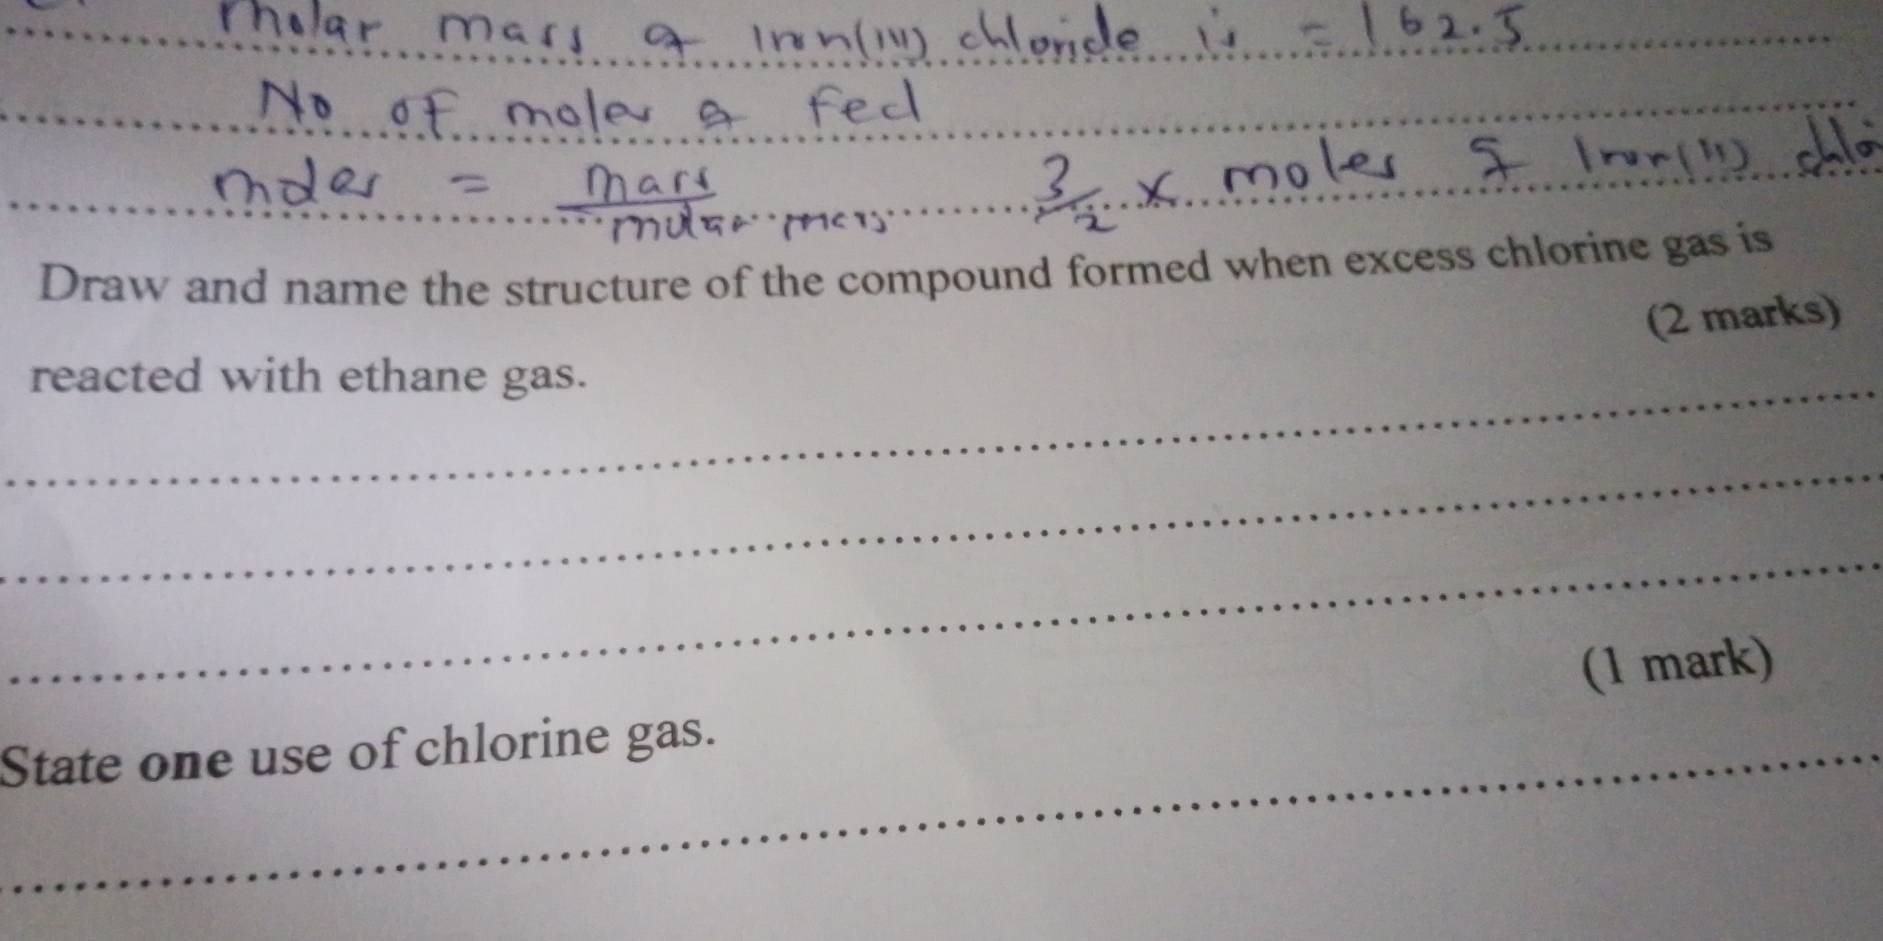 molar mass of Iron(III) chloride is = 162.5
No of moles of Fecl
moles = mass / molar mass 3/2 x moles of Iron(III) chlo
Draw and name the structure of the compound formed when excess chlorine gas is
(2 marks)
reacted with ethane gas.
(1 mark)
State one use of chlorine gas.